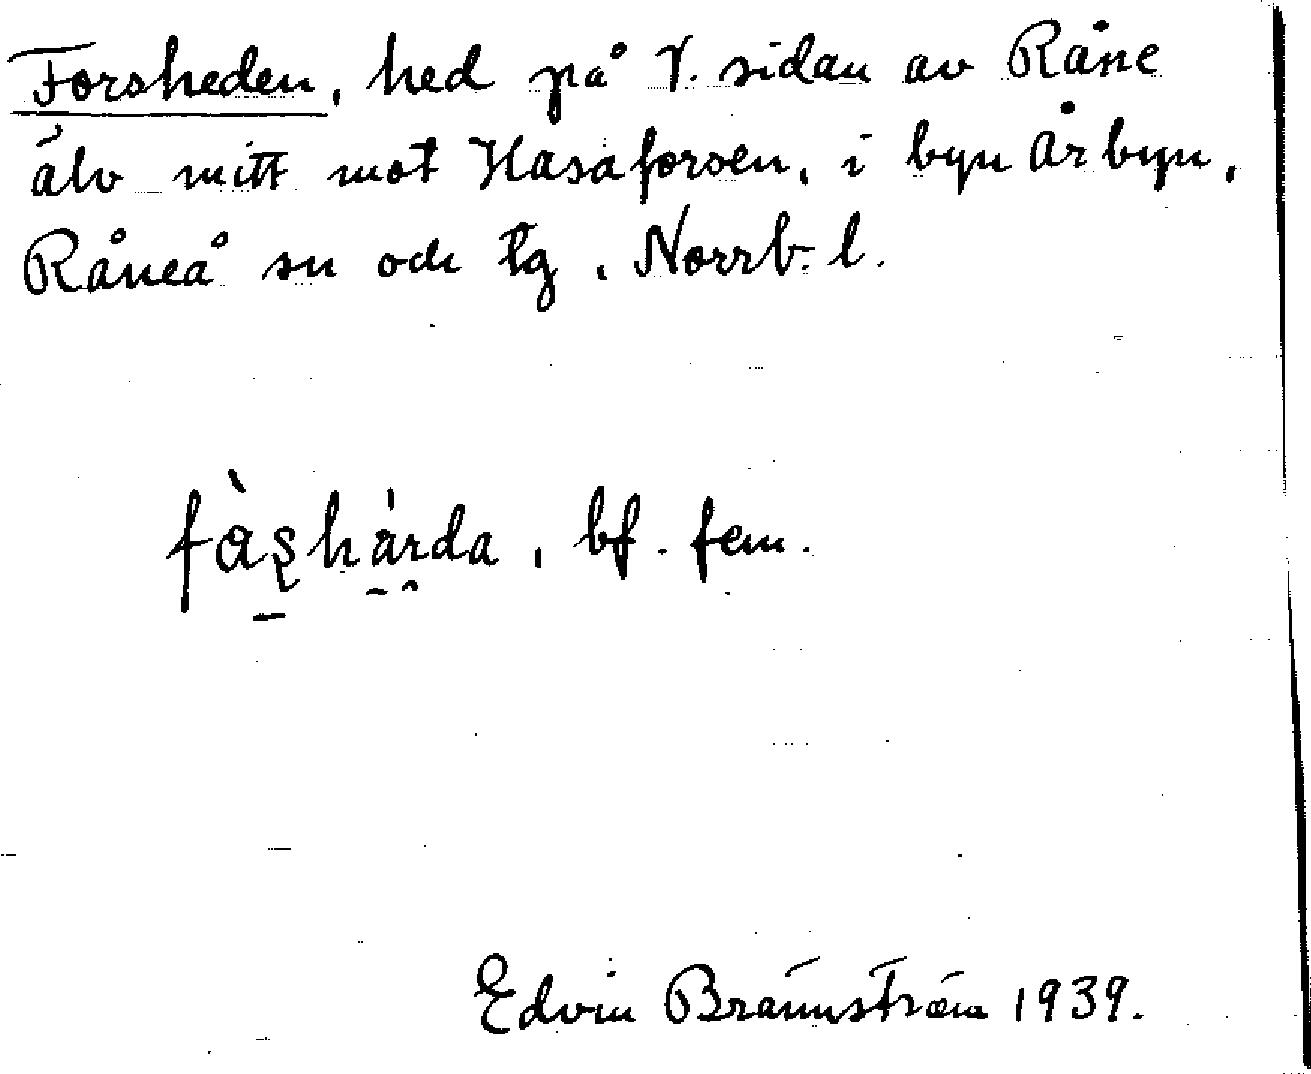 Forsheden, hed på V. sidan av Råne
älv mitt mot Hasaforsen, i byn Årbyn,
Råneå sn och tg, Norrb. l.
fàs̠hárda, bf. fem.
Edvin Brännström 1939.